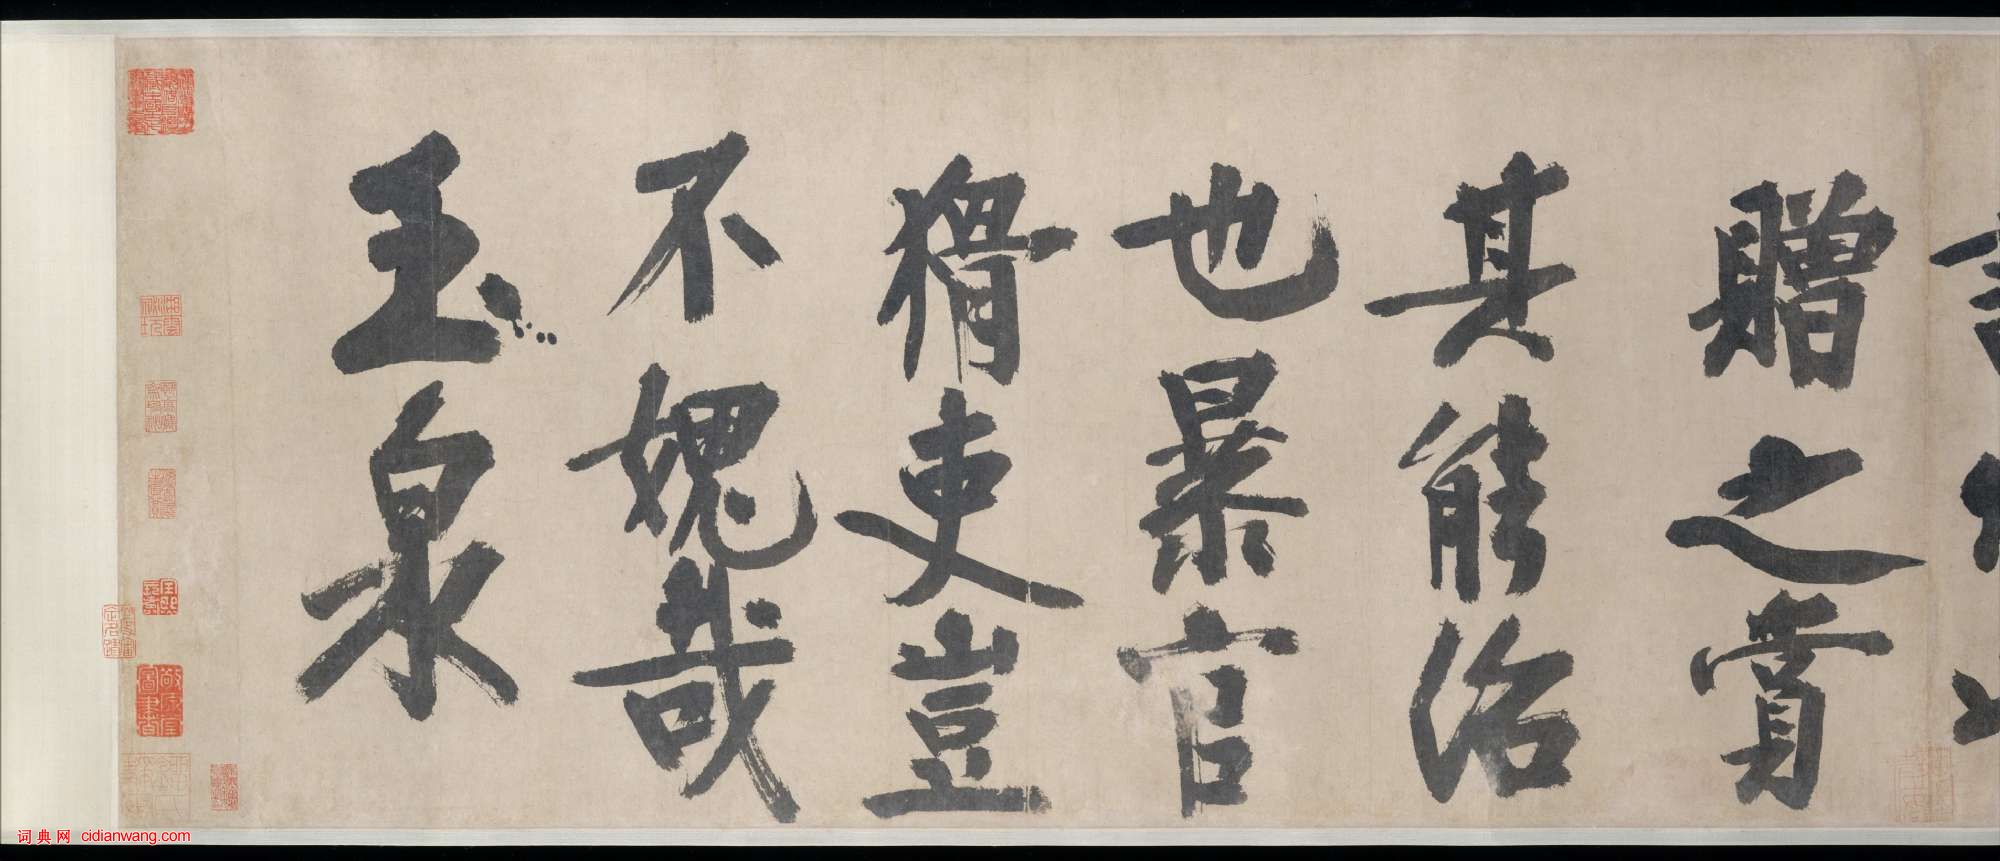 贈之賞
其能治
也暴官
猾吏豈
不愧哉
玉泉
词典网 cidianwang.com